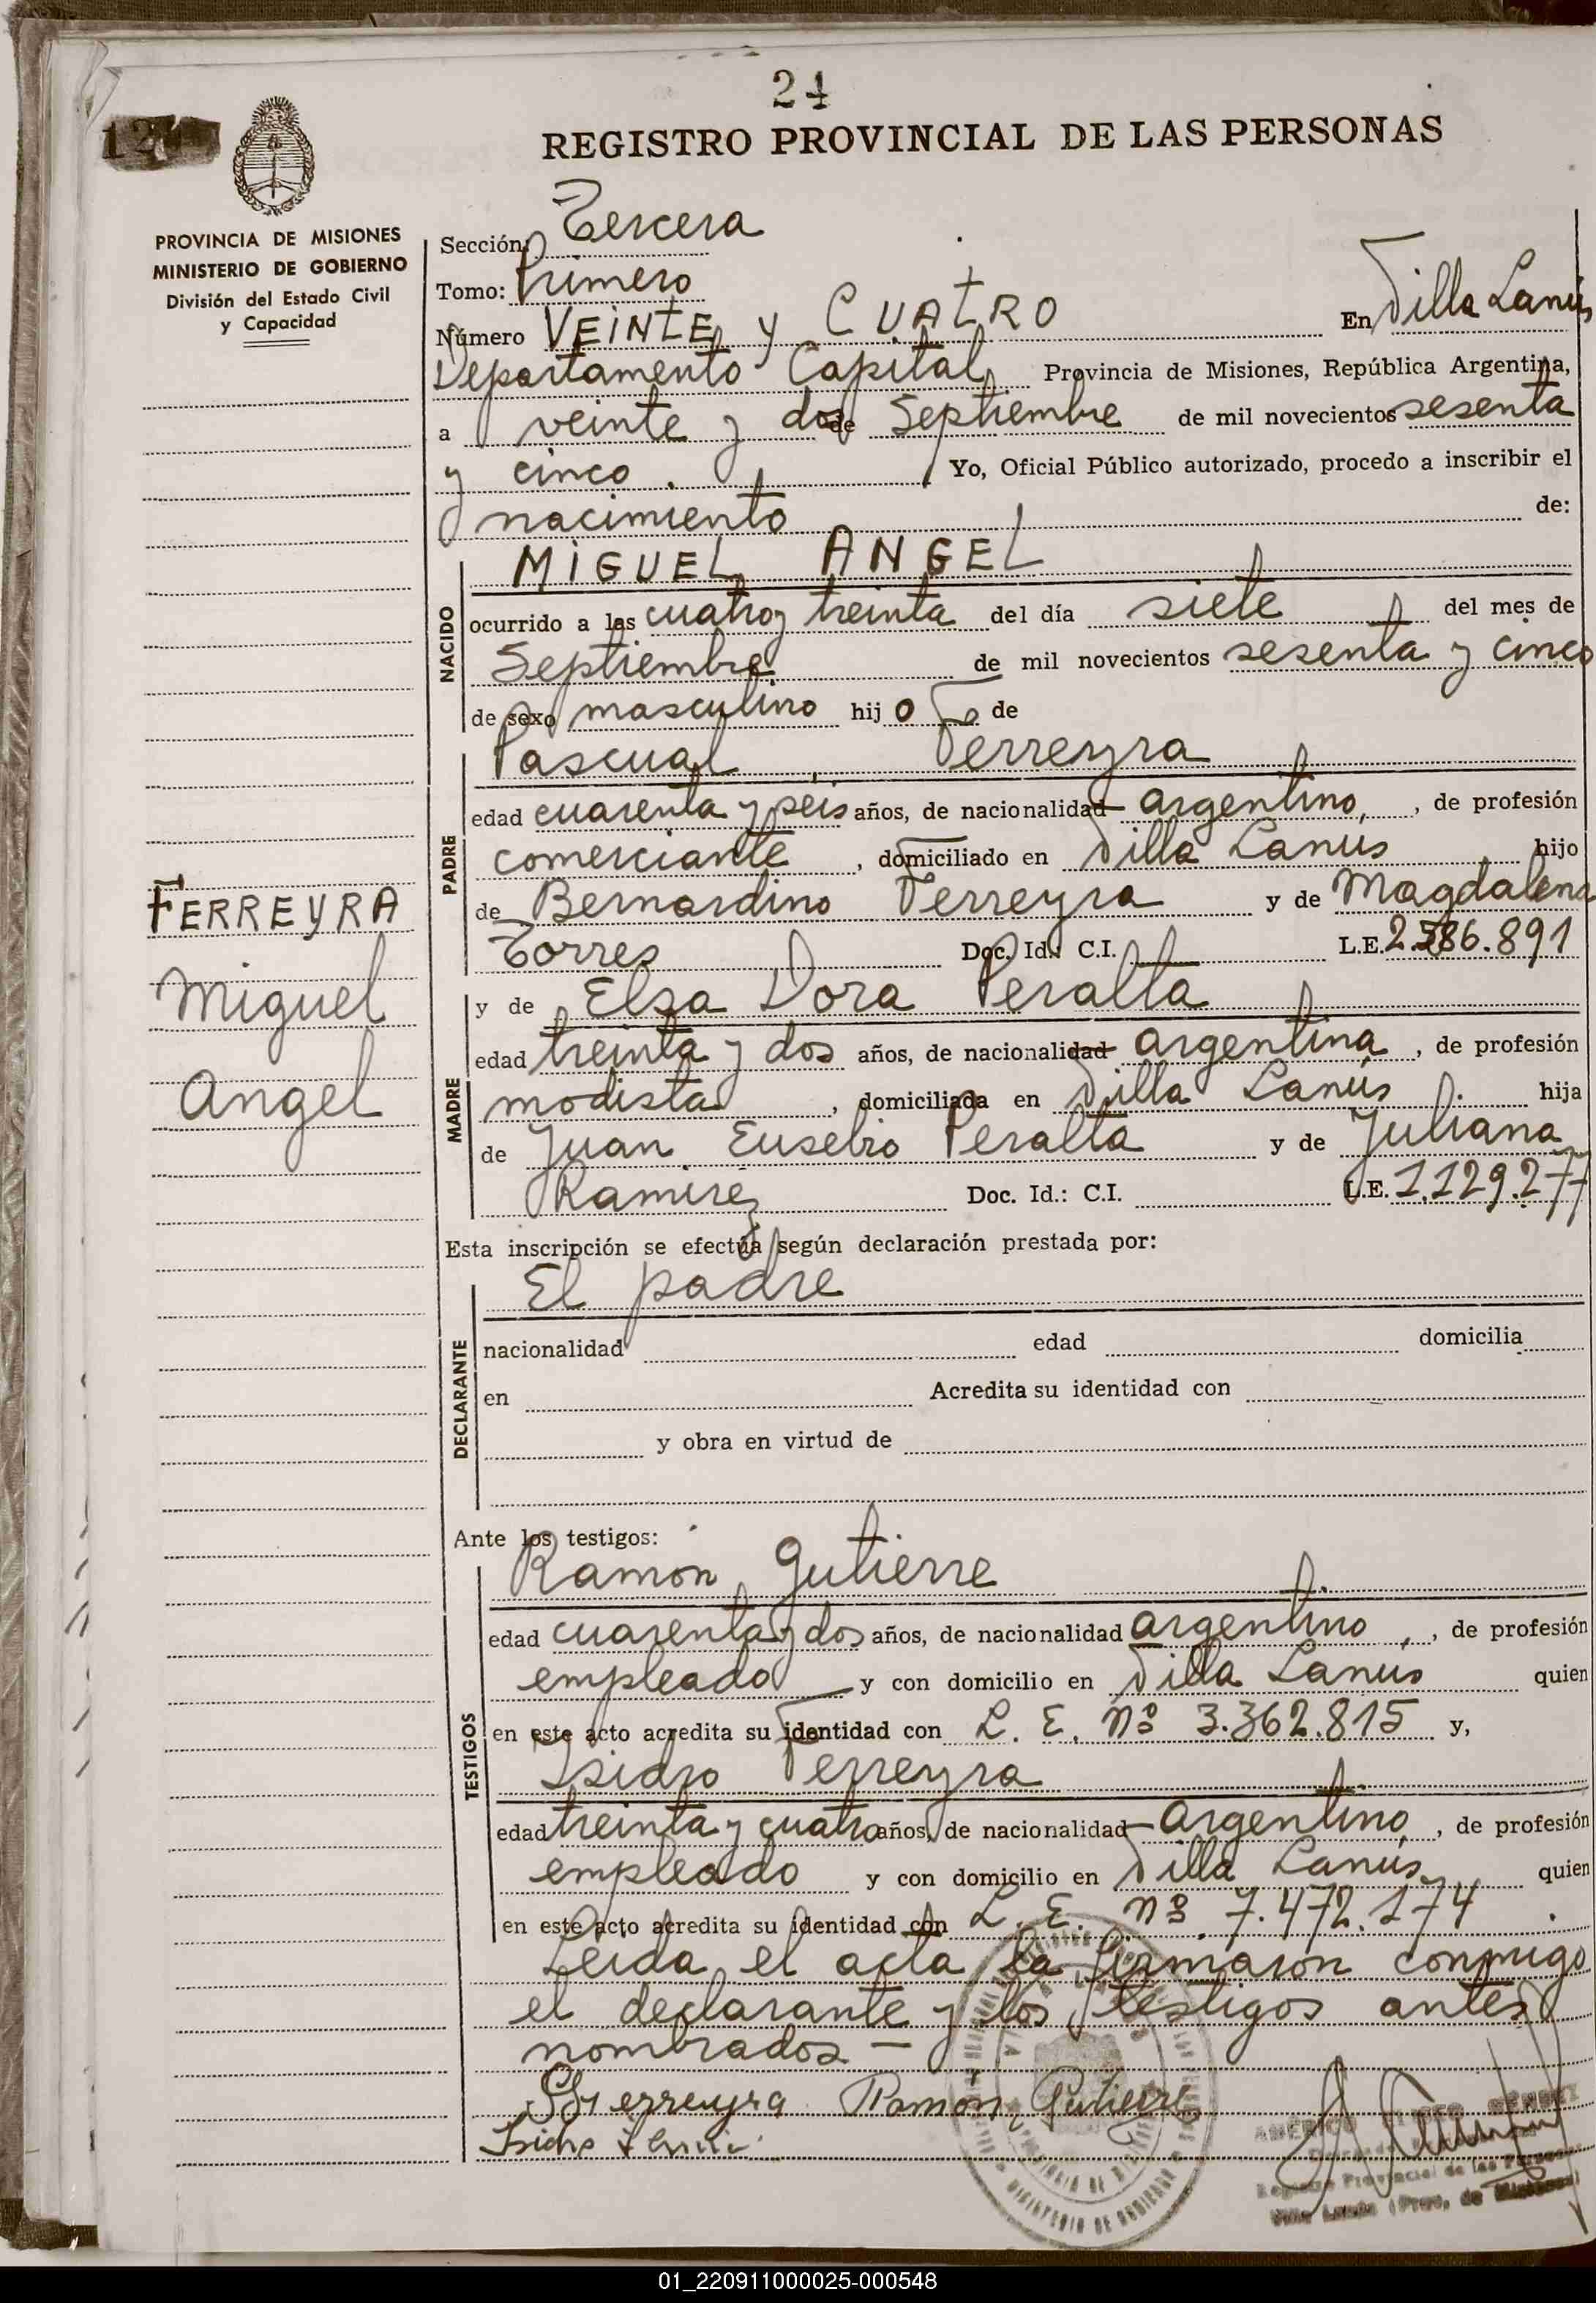 24
REGISTRO PROVINCIAL DE LAS PERSONAS
PROVINCIA DE MISIONES
MINISTERIO DE GOBIERNO
División del Estado Civil
y Capacidad
Sección: Tercera
Tomo: Primero
Número VEINTE y CUATRO En Villa Lanús
Departamento Capital Provincia de Misiones, República Argentina,
a veinte y dos de Septiembre de mil novecientos sesenta
y cinco. Yo, Oficial Público autorizado, procedo a inscribir el
nacimiento de:
MIGUEL ANGEL
NACIDO
ocurrido a las cuatro y treinta del día siete del mes de
Septiembre de mil novecientos sesenta y cinco
de sexo masculino hijo de
Pascual Ferreyra
PADRE
edad cuarenta y seis años, de nacionalidad argentino, , de profesión
comerciante , domiciliado en Villa Lanús hijo
de Bernardino Ferreyra y de Magdalena
Torres Doc. Id.: C.I. L.E.
y de Elsa Dora Peralta
MADRE
edad treinta y dos años, de nacionalidad argentina , de profesión
modista , domiciliada en Villa Lanús hija
de Juan Eusebio Peralta y de Juliana
Ramirez Doc. Id.: C.I. L.E. 1.129.277
FERREYRA
Miguel
Angel
Esta inscripción se efectúa según declaración prestada por:
El padre
DECLARANTE
nacionalidad edad domicilia
en Acredita su identidad con
y obra en virtud de
Ante los testigos:
Ramón Gutierre
TESTIGOS
edad cuarenta y dos años, de nacionalidad argentino , de profesión
empleado y con domicilio en Villa Lanús quien
en este acto acredita su identidad con L. E. nº 3.362.815 y,
Isidro Ferreyra
edad treinta y cuatro años, de nacionalidad argentino , de profesión
empleado y con domicilio en Villa Lanús quien
en este acto acredita su identidad con L. E. nº 7.472.174
Leida el acta la firmaron conmigo
el declarante y los testigos antes
nombrados —
Ferreyra Ramón Gutierre
Isidro
AMÉRICO
Registro Provincial de las Personas
Villa Lanús (Prov. de Misiones)
MINISTERIO DE GOBIERNO
01_220911000025-000548